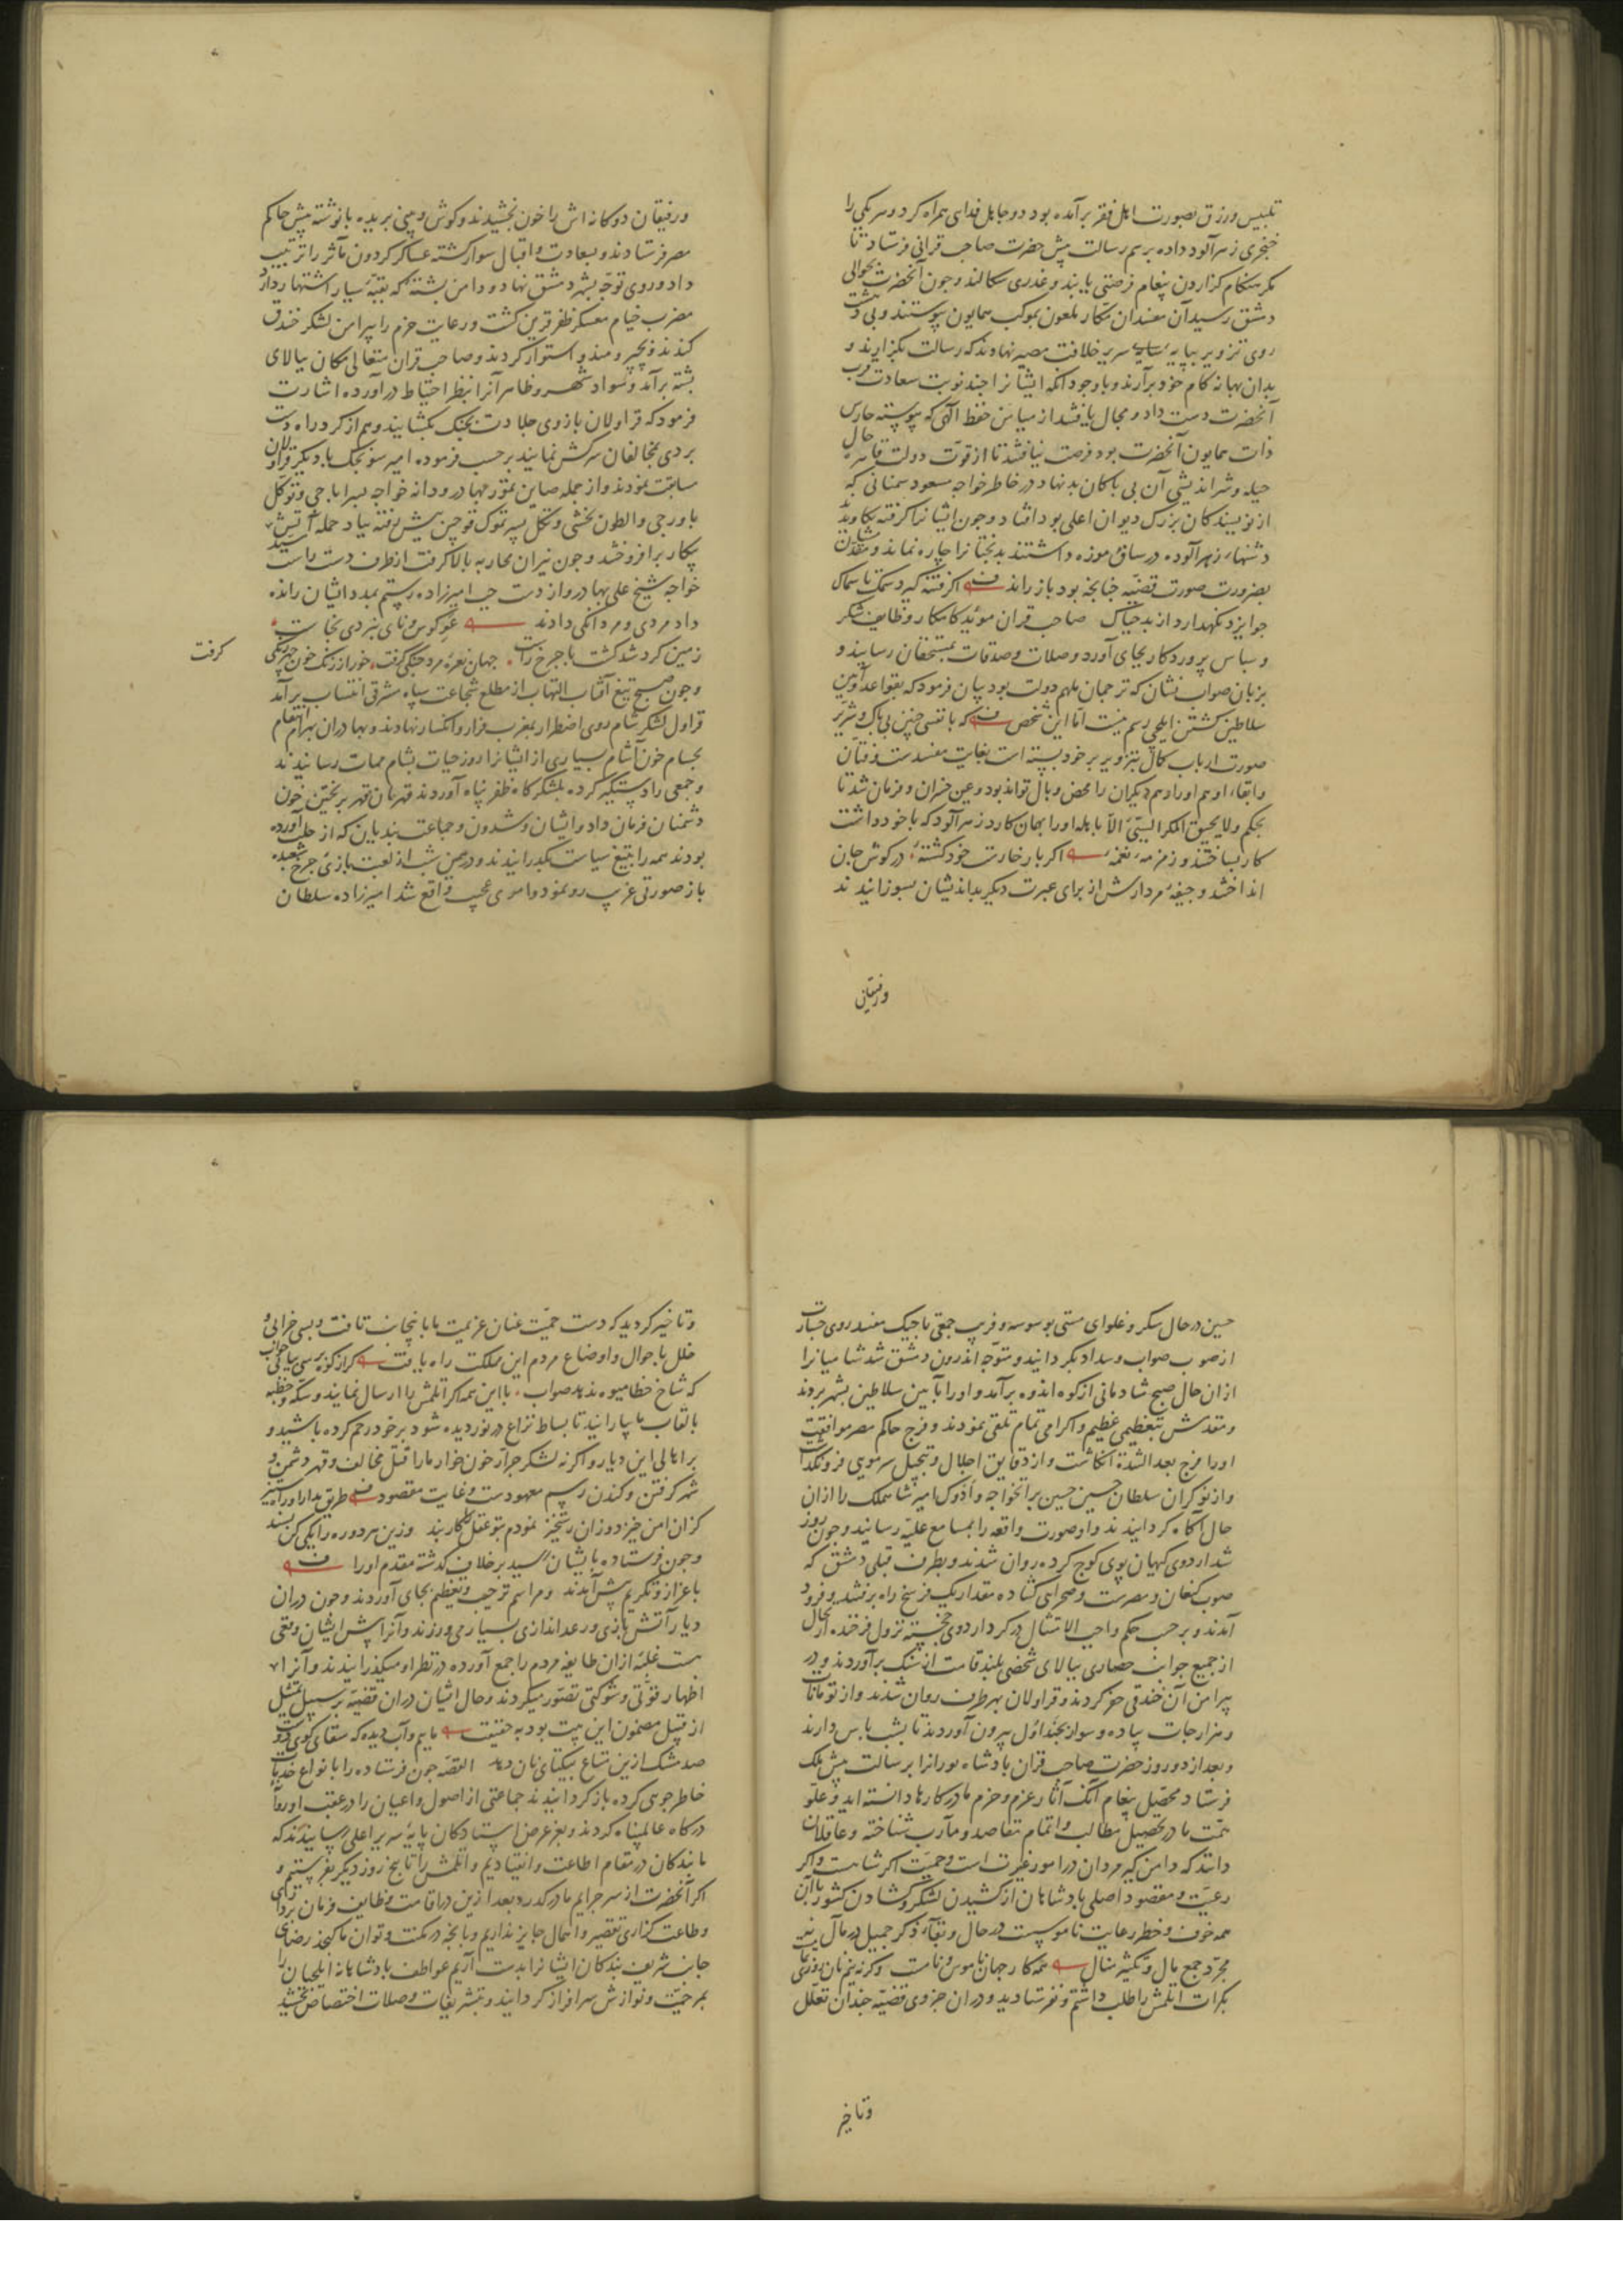 تلبیس ورزق بصورت اهل فقر برآمده بود دو جاهل فدای همراه کرد و هر یکی را
خنجری زهرآلود داده برسم رسالت پیش حضرت صاحب قرانی فرستاد تا
مکر هنکام کزاردن پیغام فرصتی یابند و غدری سکالند و چون آنحضرت بحوالی
دمشق رسید آن مفسدان مکار ملعون بموکب همایون پیوستند و بی دهشت
روی تزویر بپایه سریر خلافت مصیر نهادند که رسالت بکزارند و
بدان بهانه کام خود برآرند و باوجود آنکه ایشانرا چند نوبت سعادت قرب
آنحضرت دست داد و مجال یافتند از میامن حفظ الهی که پیوسته حارس
ذات همایون آنحضرت بود فرصت نیافتند تا از قوت دولت قاهره حال
حیله و شراندیشی آن بی باکان بدنهاد در خاطر خواجه مسعود سمنانی که
از نویسندکان بزرک دیوان اعلی بود افتاد و چون ایشانرا کرفته بکاویدند
دشنهاء زهرآلود در ساق موزه داشتند بدبختانرا چاره نماند و مقدم ایشان
بضرورت صورت قضیه چنانچه بود باز راند اکر فتنه کیرد سمک تا سماک
جو ایزد نکهدارد از بد چه باک صاحب قران مؤید کامکار وظایف شکر
و سپاس پروردکار بجای آورد و صلات و صدقات بمستحقان رسانید و
بزبان صواب نشان که ترجمان ملهم دولت بود بیان فرمود که بقواعد و آیین
سلاطین کشتن ایلچی رسم نیست اما این شخص که با نفسی چنین بی باک و شریر
صورت ارباب کمال بتزویر بر خود بسته است بغایت مفسدست و فتان
و ابقاء او هم او را و هم دیکران را محض وبال تواند بود و عین خسران و فرمان شد تا
بحکم ولا یحیق المکر السیئ الا باهله او را بهمان کارد زهرآلود که با خود داشت
کار بساختند و زمزمه نغمه اکر بار خارست خود کشته در کوش جان
انداختند و جیفه مردارش از برای عبرت دیکر بداندیشان بسوزانیدند
ورفیقانی
ورفیقان دوکانه اش را خون بخشیدند و کوش و بینی بریده با نوشته پیش حاکم
مصر فرستادند و بسعادت و اقبال سوار کشته عساکر کردون مآثر را ترتیب
داد و روی توجه بشهر دمشق نهاد و دامن پشته که بقبه سیار اشتهار دارد
مضرب خیام معسکر ظفر قرین کشت و رعایت حزم را پیرامن لشکر خندق
کندند و بچپر و مندو استوار کردند و صاحب قران متعالی مکان ببالای
پشته برآمد و سواد شهر و ظاهر آنرا بنظر احتیاط درآورده اشارت
فرمود که قراولان بازوی جلادت بجنک بکشایند و هم از کرد راه دست
بردی بمخالفان سرکش نمایند برحسب فرموده امیر سونجک با دیکر قراولان
مسابقت نمودند و از جمله صاین تمور بهادر و دانه خواجه بسر ایاجی و توکل
باورجی و الطون بخشی و تکل پسر تموک قوجین پیش رفته بباد حمله آتش
پیکار برافروختند و چون نیران محاربه بالا کرفت از طرف دست راست سید
خواجه شیخ علی بهادر و از دست چپ امیرزاده رستم بمدد ایشان رانده
داد مردی و مردانکی دادند غو کوس و نای نبردی بخاست
زمین کرد شد کشت با چرخ راست جهان نعره مرد جنکی کرفت خور از زنک خون چهر زنکی
کرفت
وجون صبح تیغ آفتاب التهاب از مطلع شجاعت سپاه مشرق انتساب برآمد
قراول لشکر شام روی اضطرار بمغرب فرار و انکسار نهادند و بهادران بهرام انتقام
بحسام خون آشام بسیاری از ایشانرا روز حیات بشام ممات رسانیدند
و جمعی را دستکیر کرده بلشکرکاه ظفر پناه آوردند قهرمان قهر بریختن خون
دشمنان فرمان داد و ایشان و شدون و جماعت بندیان که از حلب آورده
بودند همه را بتیغ سیاست بکذرانیدند و در همین شب از لعبت بازی چرخ شعبده
باز صورتی غریب رو نمود و امری عجیب واقع شد امیرزاده سلطان
حسین در حال سکر و غلوای مستی بوسوسه و فریب جمعی تاجیک مفسد روی جسارت
از صوب صواب و سداد بکردانید و متوجه اندرون دمشق شد شامیانرا
از ان حال صبح شادمانی از کوه اندوه برآمد و او را بآیین سلاطین بشهر بردند
و مقدمش بتعظیمی عظیم و اکرامی تمام تلقی نمودند و فرج حاکم مصر موافقت
او را فرج بعد الشدة انکاشت و از دقایق اجلال و تبجیل سر مویی فرو نکذاشت
و از نوکران سلطان حسین حسین برانخواجه و ادوک امیر شاهملک را ازان
حال آکاه کردانیدند و او صورت واقعه را بمسامع علیه رسانید و چون روز
شد اردوی کیهان پوی کوچ کرده روان شدند و بطرف قبلی دمشق که
صوب کنعان و مصرست و صحرای کشاده مقدار یک فرسخ راه برفتند و فرود
آمدند و بر حسب حکم واجب الامتثال در کرد اردوی خجسته نزول فرخنده مآل
از جمیع جوانب حصاری ببالای شخصی بلند قامت از سنک برآوردند و در
پیرامن آن خندقی حفر کردند و قراولان بهر طرف روان شدند و از تومانات
و هزارجات پیاده و سوار بجنداول بیرون آوردند تا بشب پاس دارند
و بعد از دو روز حضرت صاحب قران پادشاه بورانرا برسالت پیش ملک
فرستاد محصل پیغام آنک آثار عزم و حزم ما در کارها دانسته اید و علو
همت ما در تحصیل مطالب و اتمام مقاصد و مآرب شناخته و عاقلان
دانند که دامن کیر مردان در امور غیرت است و حمیت اکر شاهست و اکر
رعیت و مقصود اصلی پادشاهان از کشیدن لشکر و کشادن کشور با آن
همه خوف و خطر رعایت ناموسیست در حال و بقاء ذکر جمیل در مآل نه
مجرد جمع مال و تکثیر منال همه کار جهان ناموس و نامست وکرنه نیم نان روزی
بکرات اتلمش را طلب داشتم و نفرستادید و در ان جزوی قضیه چندان تعلل
وتاخیر
وتاخیر کردید که دست حمیت عنان عزیمت ما باینجانب تافت و بسی خرابی و
خلل باحوال و اوضاع مردم این مملکت راه یافت کر از کوه پرسی بیابی جواب
که شاخ خطا میوه ندهد صواب با این همه اکر اتلمش را ارسال نمایند و سکه و خطبه
بالقاب ما بیارایند تا بساط نزاع درنوردیده شود بر خود رحم کرده باشید و
بر اهالی این دیار و اکر نه لشکر جرار خون خوار ما را قتل مخالف و قهر دشمن و
شهر کرفتن و کندن رسم معهودست و غایت مقصود طریق مدارا و راه ستیز
کزان امن خیزد وزان رستخیز نمودم بتو عقل را کار بند وزین هر دو ره را یکی کن پسند
وجون فرستاده بایشان رسید برخلاف کذشته مقدم او را
باعزاز و تکریم پیش آمدند و مراسم ترحیب و تعظیم بجای آوردند و چون در ان
دیار آتش بازی و رعد اندازی بسیار می ورزند و آنرا پیش ایشان وقعی
هست غلبه از ان طایفه مردم را جمع آورده در نظر او میکذرانیدند و آنرا
اظهار قوتی و شوکتی تصور میکردند و حال ایشان در ان قضیه بر سبیل تمثیل
از قبیل مضمون این بیت بود به حقیقت ماییم و آب دیده که سقای کوی دوست
صد مشک ازین متاع بیکتای نان دهد القصه چون فرستاده را بانواع خدمات
خاطر جویی کرده باز کردانیدند جماعتی از اصول و اعیان را در عقب او روانه
درکاه عالمپناه کردند و بعز عرض ایستادکان پایه سریر اعلی رسانیدند که
ما بندکان در مقام اطاعت و انقیادیم و اتلمش را تا پنج روز دیکر بفرستیم و
اکر آنحضرت از سر جرایم ما درکذرد بعد ازین در اقامت وظایف فرمان برداری
و طاعت کزاری تقصیر و اهمال جایز نداریم و بانچه در مکنت و توان ما کنجد رضای
جانب شریف بندکان ایشانرا بدست آریم عواطف پادشاهانه ایلچیان را
بمرحمت و نوازش سرافراز کردانید و بتشریفات و صلات اختصاص بخشید